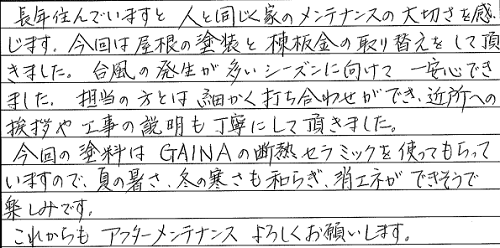 長年住んでいますと 人と同じく家のメンテナンスの大切さを感
じます。今回は屋根の塗装と棟板金の取り替えをして頂
きました。台風の発生が多いシーズンに向けて 一安心でき
ました。担当の方とは細かく打ち合わせができ、近所への
挨拶や工事の説明も丁寧にして頂きました。
今回の塗料はGAINAの断熱セラミックを使ってもらって
いますので、夏の暑さ、冬の寒さも和らぎ、省エネができそうで
楽しみです。
これからも アフターメンテナンス よろしくお願いします。